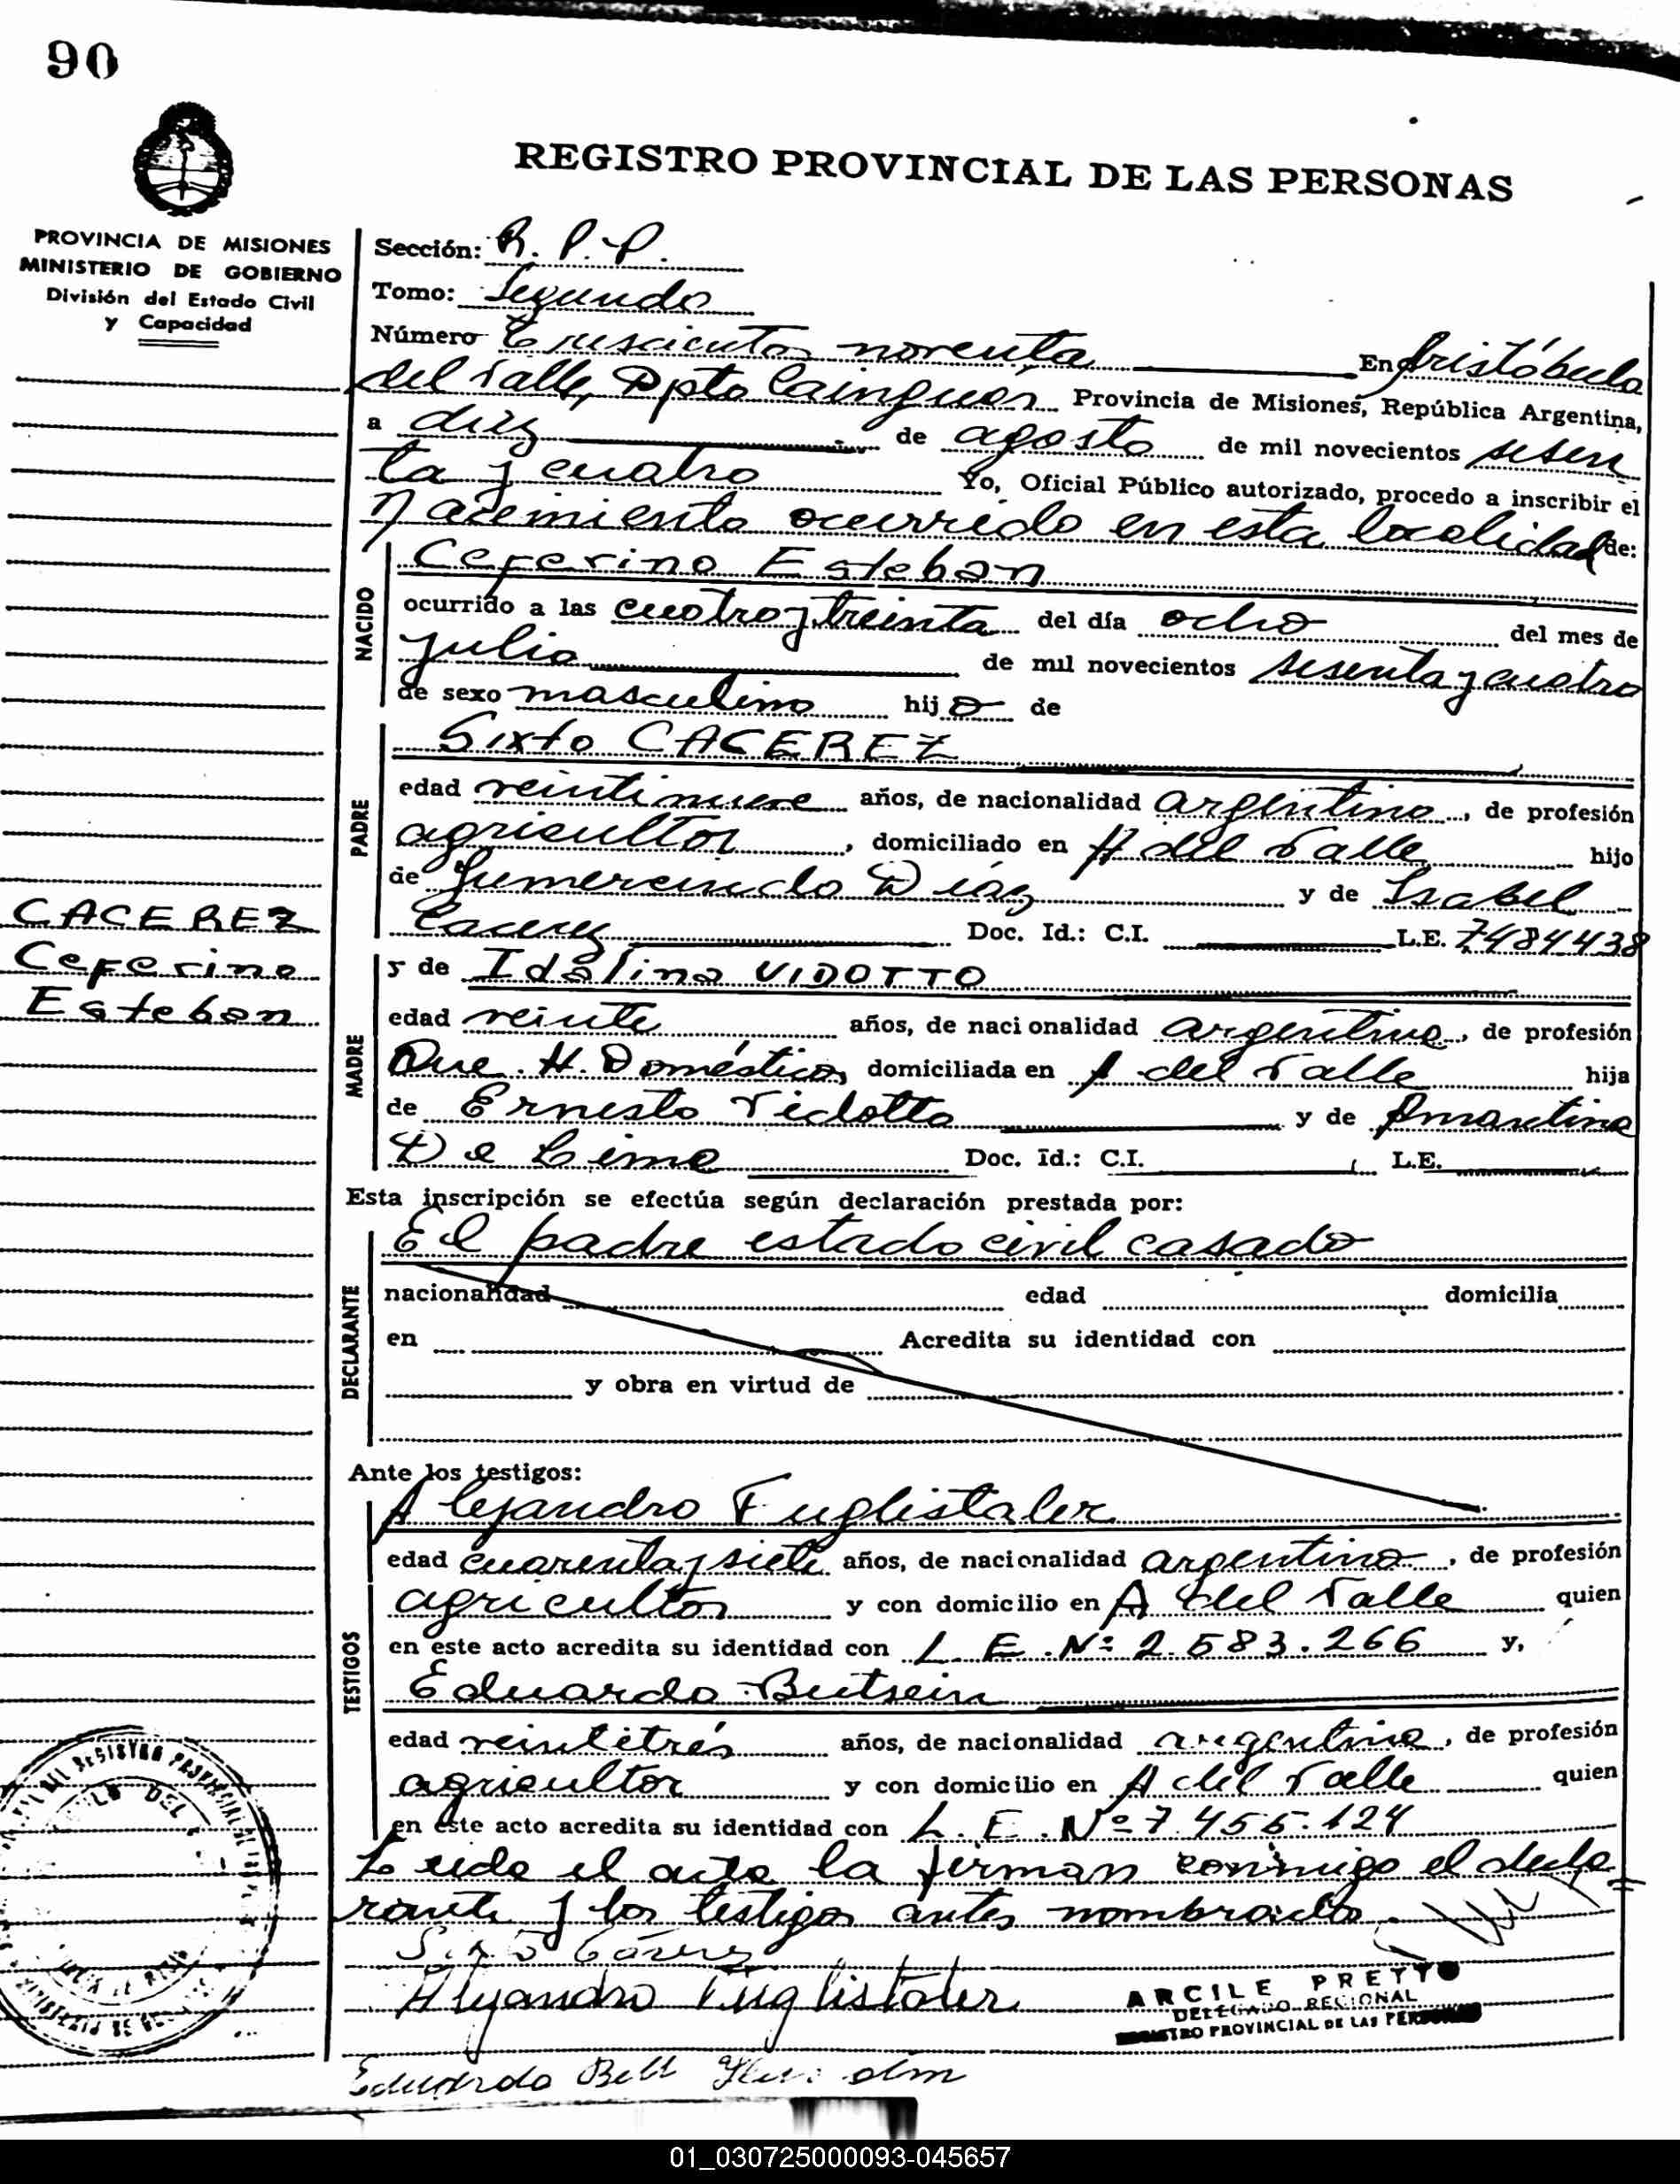 90
REGISTRO PROVINCIAL DE LAS PERSONAS
PROVINCIA DE MISIONES
MINISTERIO DE GOBIERNO
División del Estado Civil
y Capacidad
Sección: R. P. P.
Tomo: Segundo
Número Trescientos noventa En Aristóbulo
del Valle, Dpto Cainguás Provincia de Misiones, República Argentina,
a diez de agosto de mil novecientos sesen
ta y cuatro Yo, Oficial Público autorizado, procedo a inscribir el
Nacimiento ocurrido en esta localidad de:
NACIDO
Ceferino Esteban
ocurrido a las cuatro y treinta del día ocho del mes de
julio de mil novecientos sesenta y cuatro
de sexo masculino hijo de
PADRE
Sixto CACEREZ
edad veintinueve años, de nacionalidad argentino, de profesión
agricultor, domiciliado en A del Valle hijo
de Gumercindo Diáz y de Isabel
Cacerez Doc. Id.: C.I. L.E. 7484438
MADRE
y de Idalina VIDOTTO
edad veinte años, de nacionalidad argentina, de profesión
Que. H. Domésticos, domiciliada en A del Valle hija
de Ernesto Vidotto y de Amantina
De Lima Doc. Id.: C.I. L.E.
CACEREZ
Ceferino
Esteban
Esta inscripción se efectúa según declaración prestada por:
DECLARANTE
El padre estado civil casado
nacionalidad edad domicilia
en Acredita su identidad con
y obra en virtud de
Ante los testigos:
TESTIGOS
Alejandro Fuglistaler
edad cuarenta y siete años, de nacionalidad argentino, de profesión
agricultor y con domicilio en A del Valle quien
en este acto acredita su identidad con L. E. Nº 2.583.266 y,
Eduardo
edad veintitrés años, de nacionalidad argentino, de profesión
agricultor y con domicilio en A del Valle quien
en este acto acredita su identidad con L. E. Nº 7.455.124
Leida el acta la firman conmigo el decla
rante y los testigos antes nombrados
Sixto Cácerez
Alejandro Fuglistaler
ARCILE PRETTO
DELEGADO REGIONAL
REGISTRO PROVINCIAL DE LAS PERSONAS
Eduardo
01_030725000093-045657